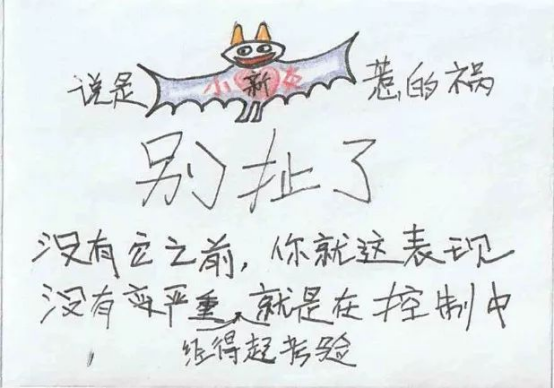 说是小新友惹的祸
别扯了
没有它之前，你就这表现
没有变严重，就是在控制中
经得起考验